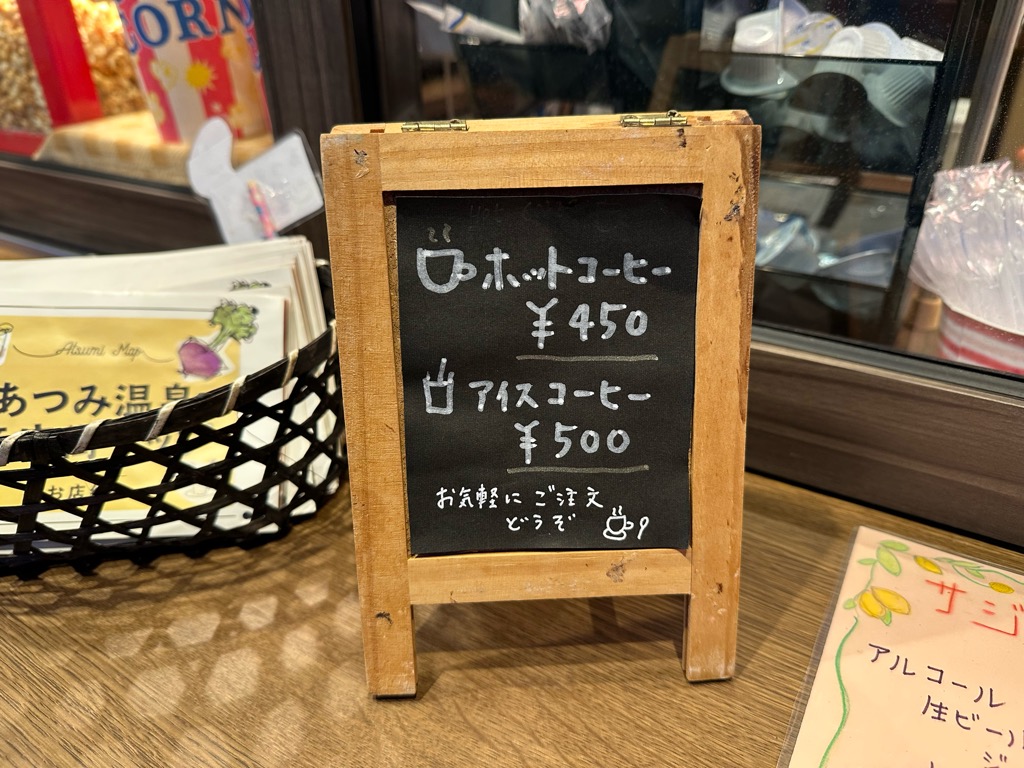 CORN
Atsumi Map
あつみ温泉
お店
ホットコーヒー
¥450
アイスコーヒー
¥500
お気軽に ご注文
どうぞ
サジ
アルコール
生ビール